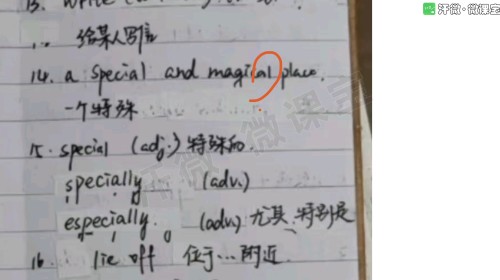 汗微·微课宝
13. write
给某人写信
14. a special and magical place.
一个特殊
15. special (adj.) 特殊的.
specially (adv.)
especially. (adv.) 尤其、特别是
16. lie off 位于…附近